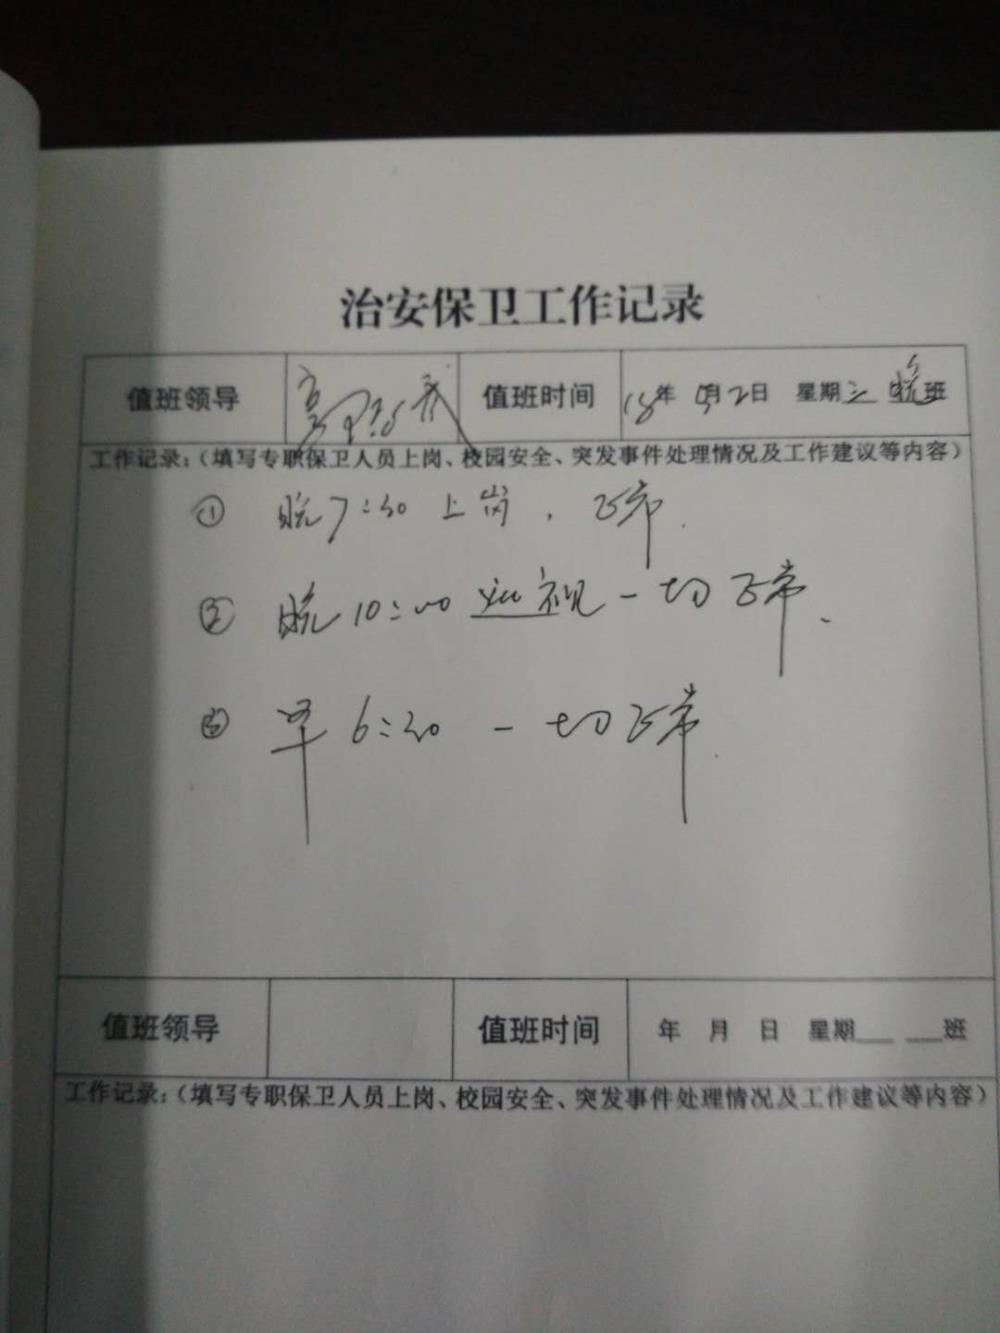 治安保卫工作记录
值班领导 值班时间 18年 月2日 星期三 晚班
工作记录：（填写专职保卫人员上岗、校园安全、突发事件处理情况及工作建议等内容）
① 晚7:30 上岗，正常.
② 晚10:00 巡视一切正常.
③ 早6:30 一切正常.
值班领导 值班时间 年 月 日 星期___ ___班
工作记录：（填写专职保卫人员上岗、校园安全、突发事件处理情况及工作建议等内容）